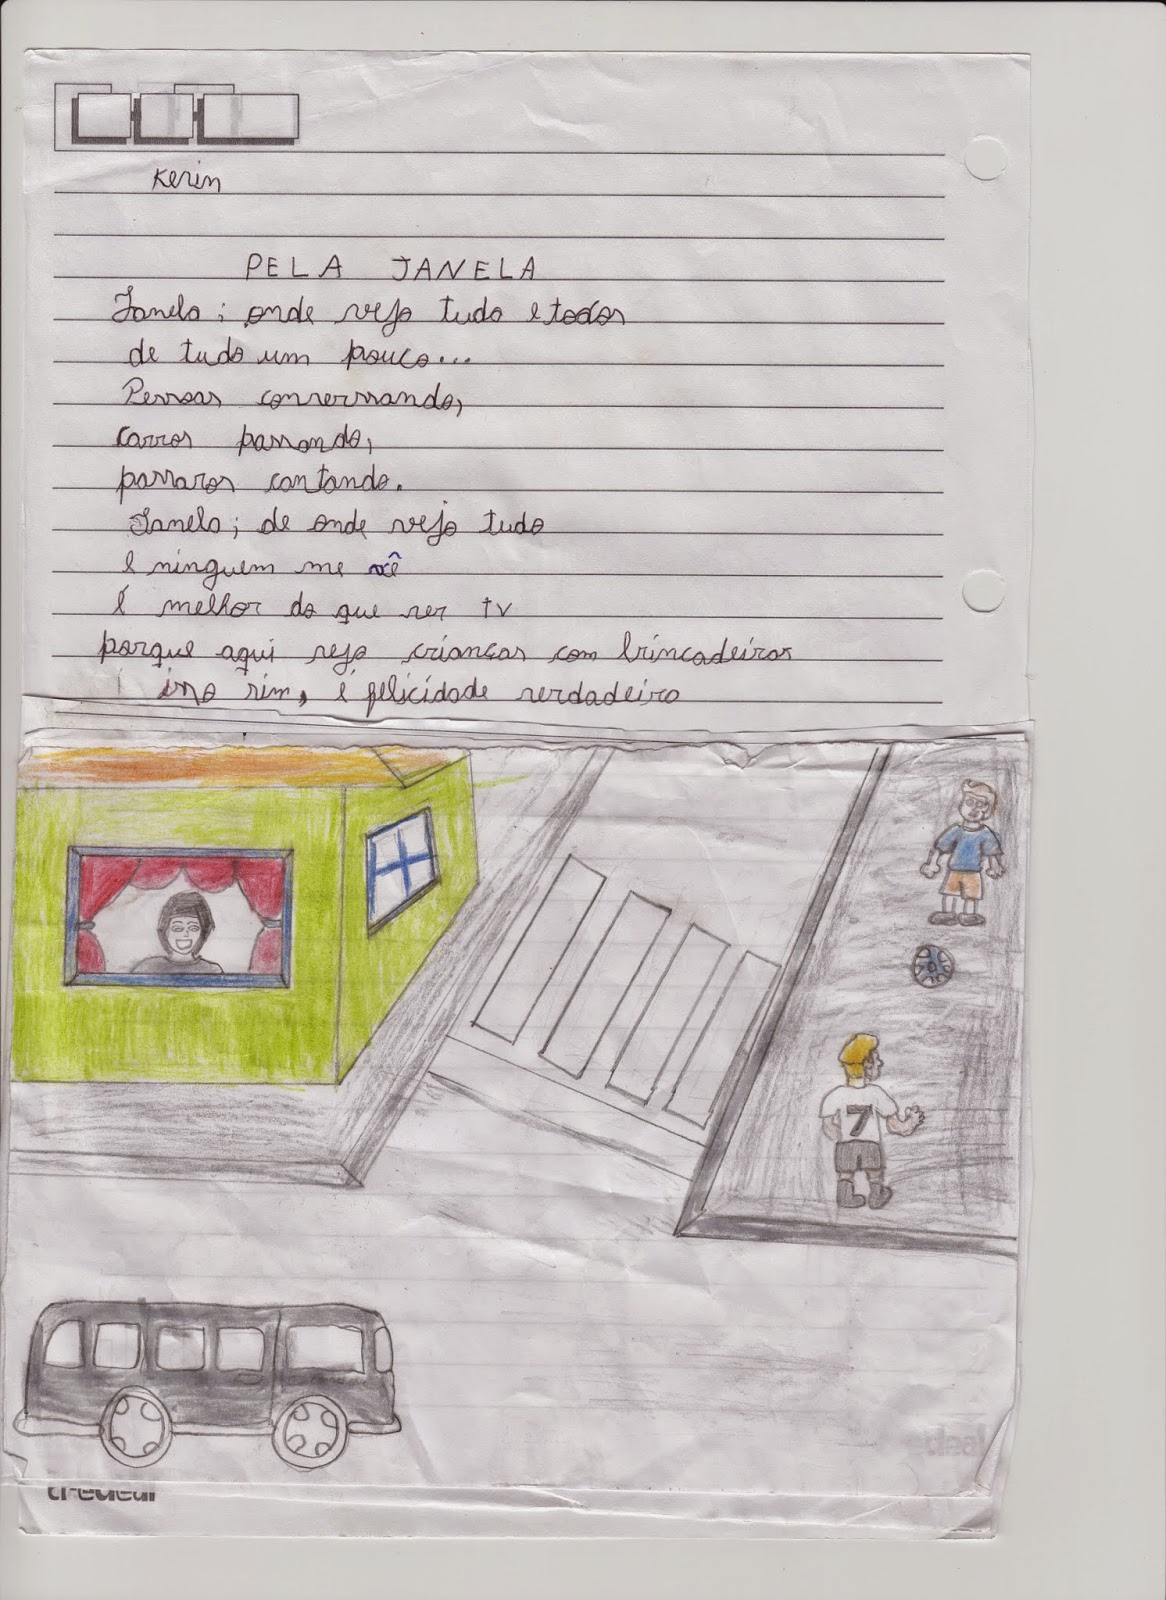 Kerin
PELA JANELA
Janela; onde vejo tudo e todos
de tudo um pouco...
Pessoas conversando,
carros passando,
passaros cantando.
Janela; de onde vejo tudo
e ninguem me vê
É melhor do que ver tv
porque aqui vejo crianças com brincadeiras
isso sim, é felicidade verdadeira
7
credeal